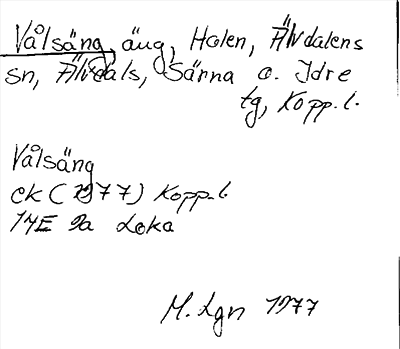 Vålsäng, äng, Holen, Älvdalens
sn, Älvdals, Särna o. Idre
tg, Kopp. l.
Vålsäng
ek (1977) Kopp. l
14E 9a Loka
M. Lgn 1977